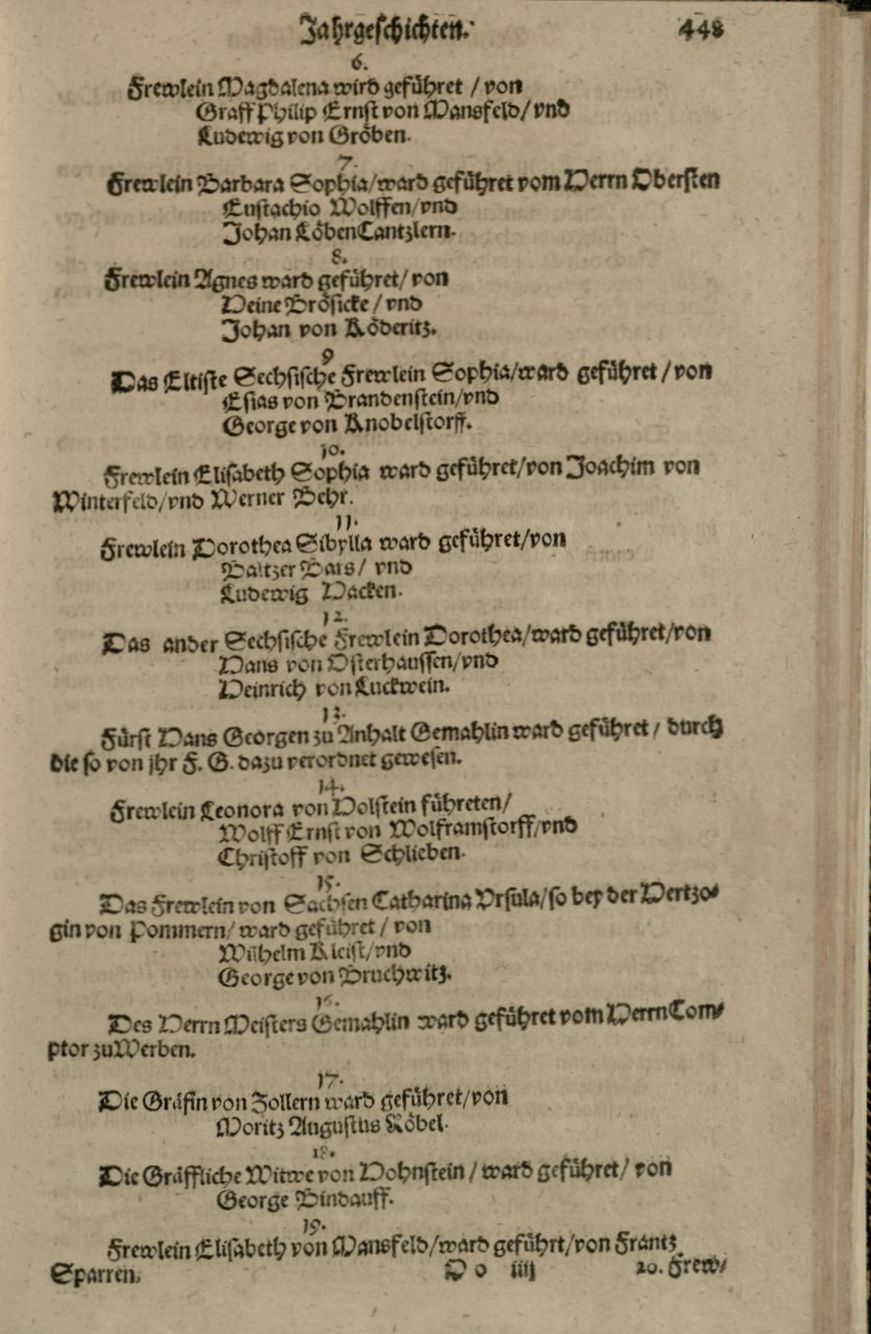 Jahrgeschichten. 448
6.
Frewlein Magdalena wird geführet / von
Graff Philip Ernst von Mansfeld / vnd
Ludewig von Gröben.
7.
Frewlein Barbara Sophia / ward geführet vom Herrn Obersten
Eustachio Wolffen / vnd
Johan Löben Cantzlern.
8.
Frewlein Agnes ward geführet / von
Heine Brösicke / vnd
Johan von Köderitz.
9
Das Eltiste Sechsische Frewlein Sophia / ward geführet / von
Esias von Brandenstein / vnd
George von Knobelstorff.
10.
Frewlein Elisabeth Sophia ward geführet / von Joachim von
Winterfeld / vnd Werner Behr.
11.
Frewlein Dorothea Sibylla ward geführet / von
Baltzer Bars / vnd
Ludewig Hacken.
12.
Das ander Sechsische Frewlein Dorothea / ward geführet / von
Hans von Osterhaussen / vnd
Heinrich von Luckwein.
13.
Fürst Hans Georgen zu Anhalt Gemahlin ward geführet / durch
die so von jhr F. G. dazu verordnet gewesen.
14.
Frewlein Leonora von Holstein führeten /
Wolff Ernst von Wolframstorff / vnd
Christoff von Schlieben.
15.
Das Frewlein von Sachsen Catharina Vrsula / so bey der Hertzo⸗
gin von Pommern / ward geführet / von
Wilhelm Kleist / vnd
George von Bruchwitz.
16.
Des Herrn Meisters Gemahlin ward geführet vom Herrn Com⸗
ptor zu Werben.
17.
Die Gräfin von Zollern ward geführet / von
Moritz Augustus Röbel.
18.
Die Gräffliche Witwe von Hohnstein / ward geführet / von
George Bindauff.
19.
Frewlein Elisabeth von Mansfeld / ward geführt / von Frantz
Sparren. Oo iiij 20. Frew⸗